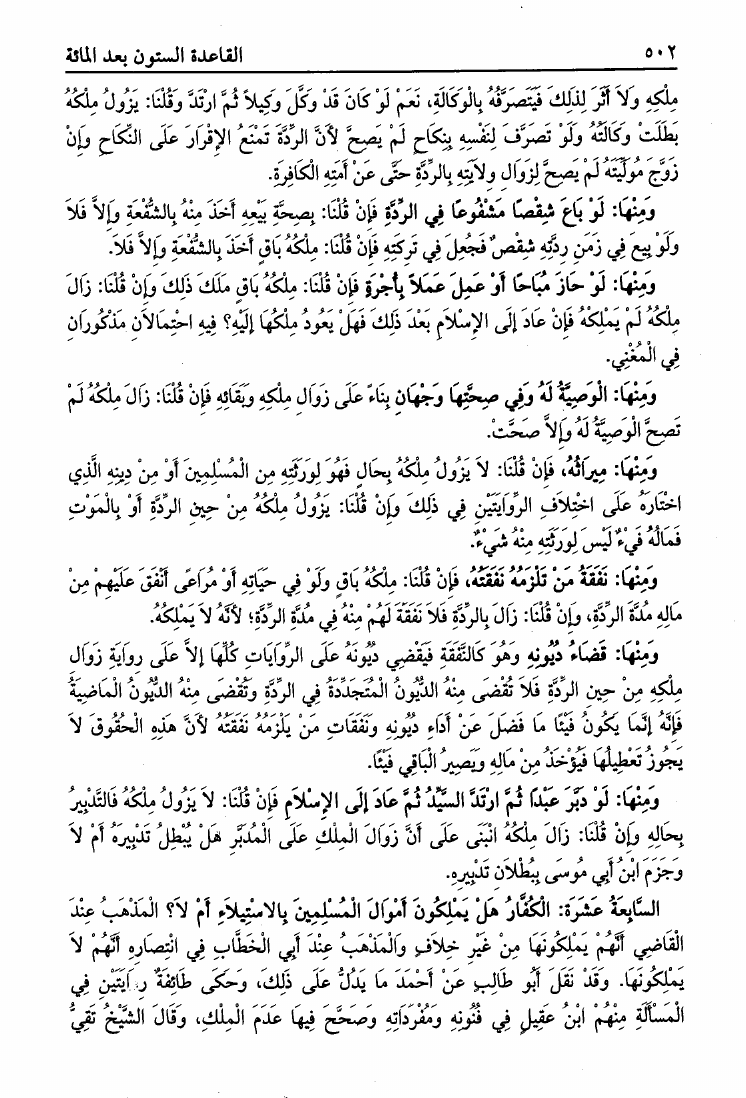 ٥٠٢ القاعدة الستون بعد المائة
مِلْكِهِ وَلاَ أَثَرَ لِذَلِكَ فَيَتَصَرَّفُهُ بِالْوَكَالَةِ، نَعَمْ لَوْ كَانَ قَدْ وَكَّلَ وَكِيلاً ثُمَّ ارْتَدَّ وَقُلْنَا: يَزُولُ مِلْكُهُ
بَطَلَتْ وَكَالَتُهُ وَلَوْ تَصَرَّفَ لِنَفْسِهِ بِنِكَاحٍ لَمْ يَصِحَّ لأَنَّ الرِّدَّةَ تَمْنَعُ الإِقْرَارَ عَلَى النِّكَاحِ وَإِنْ
زَوَّجَ مُوَلِّيَتَهُ لَمْ يَصِحَّ لِزَوَالِ وِلاَيَتِهِ بِالرِّدَّةِ حَتَّى عَنْ أَمَتِهِ الْكَافِرَةِ.
وَمِنْهَا: لَوْ بَاعَ شِقْصًا مَشْفُوعًا فِي الرِّدَّةِ فَإِنْ قُلْنَا: بِصِحَّةِ بَيْعِهِ أَخَذَ مِنْهُ بِالشُّفْعَةِ وَإِلاَّ فَلاَ
وَلَوْ بِيعَ فِي زَمَنِ رِدَّتِهِ شِقْصٌ فَجُعِلَ فِي تَرِكَتِهِ فَإِنْ قُلْنَا: مِلْكُهُ بَاقٍ أَخَذَ بِالشُّفْعَةِ وَإِلاَّ فَلاَ.
وَمِنْهَا: لَوْ حَازَ مُبَاحًا أَوْ عَمِلَ عَمَلاً بِأُجْرَةٍ فَإِنْ قُلْنَا: مِلْكُهُ بَاقٍ مَلَكَ ذَلِكَ وَإِنْ قُلْنَا: زَالَ
مِلْكُهُ لَمْ يَمْلِكْهُ فَإِنْ عَادَ إِلَى الإِسْلاَمِ بَعْدَ ذَلِكَ فَهَلْ يَعُودُ مِلْكُهَا إِلَيْهِ؟ فِيهِ احْتِمَالاَنِ مَذْكُورَانِ
فِي الْمُغْنِي.
وَمِنْهَا: الْوَصِيَّةُ لَهُ وَفِي صِحَّتِهَا وَجْهَانِ بِنَاءً عَلَى زَوَالِ مِلْكِهِ وَبَقَائِهِ فَإِنْ قُلْنَا: زَالَ مِلْكُهُ لَمْ
تَصِحَّ الْوَصِيَّةُ لَهُ وَإِلاَّ صَحَّتْ.
وَمِنْهَا: مِيرَاثُهُ، فَإِنْ قُلْنَا: لاَ يَزُولُ مِلْكُهُ بِحَالٍ فَهُوَ لِوَرَثَتِهِ مِنَ الْمُسْلِمِينَ أَوْ مِنْ دِينِهِ الَّذِي
اخْتَارَهُ عَلَى اخْتِلاَفِ الرِّوَايَتَيْنِ فِي ذَلِكَ وَإِنْ قُلْنَا: يَزُولُ مِلْكُهُ مِنْ حِينِ الرِّدَّةِ أَوْ بِالْمَوْتِ
فَمَالُهُ فَيْءٌ لَيْسَ لِوَرَثَتِهِ مِنْهُ شَيْءٌ.
وَمِنْهَا: نَفَقَةُ مَنْ تَلْزَمُهُ نَفَقَتُهُ، فَإِنْ قُلْنَا: مِلْكُهُ بَاقٍ وَلَوْ فِي حَيَاتِهِ أَوْ مُرَاعًى أَنْفَقَ عَلَيْهِمْ مِنْ
مَالِهِ مُدَّةَ الرِّدَّةِ، وَإِنْ قُلْنَا: زَالَ بِالرِّدَّةِ فَلاَ نَفَقَةَ لَهُمْ مِنْهُ فِي مُدَّةِ الرِّدَّةِ؛ لأَنَّهُ لاَ يَمْلِكُهُ.
وَمِنْهَا: قَضَاءُ دُيُونِهِ وَهُوَ كَالنَّفَقَةِ فَيَقْضِي دُيُونَهُ عَلَى الرِّوَايَاتِ كُلِّهَا إِلاَّ عَلَى رِوَايَةِ زَوَالِ
مِلْكِهِ مِنْ حِينِ الرِّدَّةِ فَلاَ تُقْضَى مِنْهُ الدُّيُونُ الْمُتَجَدِّدَةُ فِي الرِّدَّةِ وَتُقْضَى مِنْهُ الدُّيُونُ الْمَاضِيَةُ
فَإِنَّهُ إِنَّمَا يَكُونُ فَيْئًا مَا فَضَلَ عَنْ أَدَاءِ دُيُونِهِ وَنَفَقَاتِ مَنْ يَلْزَمُهُ نَفَقَتُهُ لأَنَّ هَذِهِ الْحُقُوقَ لاَ
يَجُوزُ تَعْطِيلُهَا فَيُؤْخَذُ مِنْ مَالِهِ وَيَصِيرُ الْبَاقِي فَيْئًا.
وَمِنْهَا: لَوْ دَبَّرَ عَبْدًا ثُمَّ ارْتَدَّ السَّيِّدُ ثُمَّ عَادَ إِلَى الإِسْلاَمِ فَإِنْ قُلْنَا: لاَ يَزُولُ مِلْكُهُ فَالتَّدْبِيرُ
بِحَالِهِ وَإِنْ قُلْنَا: زَالَ مِلْكُهُ انْبَنَى عَلَى أَنَّ زَوَالَ الْمِلْكِ عَلَى الْمُدَبَّرِ هَلْ يُبْطِلُ تَدْبِيرَهُ أَمْ لاَ
وَجَزَمَ ابْنُ أَبِي مُوسَى بِبُطْلاَنِ تَدْبِيرِهِ.
السَّابِعَةُ عَشَرَةَ: الْكُفَّارُ هَلْ يَمْلِكُونَ أَمْوَالَ الْمُسْلِمِينَ بِالاسْتِيلاَءِ أَمْ لاَ؟ الْمَذْهَبُ عِنْدَ
الْقَاضِي أَنَّهُمْ يَمْلِكُونَهَا مِنْ غَيْرِ خِلاَفٍ وَالْمَذْهَبُ عِنْدَ أَبِي الْخَطَّابِ فِي انْتِصَارِهِ أَنَّهُمْ لاَ
يَمْلِكُونَهَا. وَقَدْ نَقَلَ أَبُو طَالِبٍ عَنْ أَحْمَدَ مَا يَدُلُّ عَلَى ذَلِكَ، وَحَكَى طَائِفَةٌ رِوَايَتَيْنِ فِي
الْمَسْأَلَةِ مِنْهُمْ ابْنُ عَقِيلٍ فِي فُنُونِهِ وَمُفْرَدَاتِهِ وَصَحَّحَ فِيهَا عَدَمَ الْمِلْكِ، وَقَالَ الشَّيْخُ تَقِيُّ